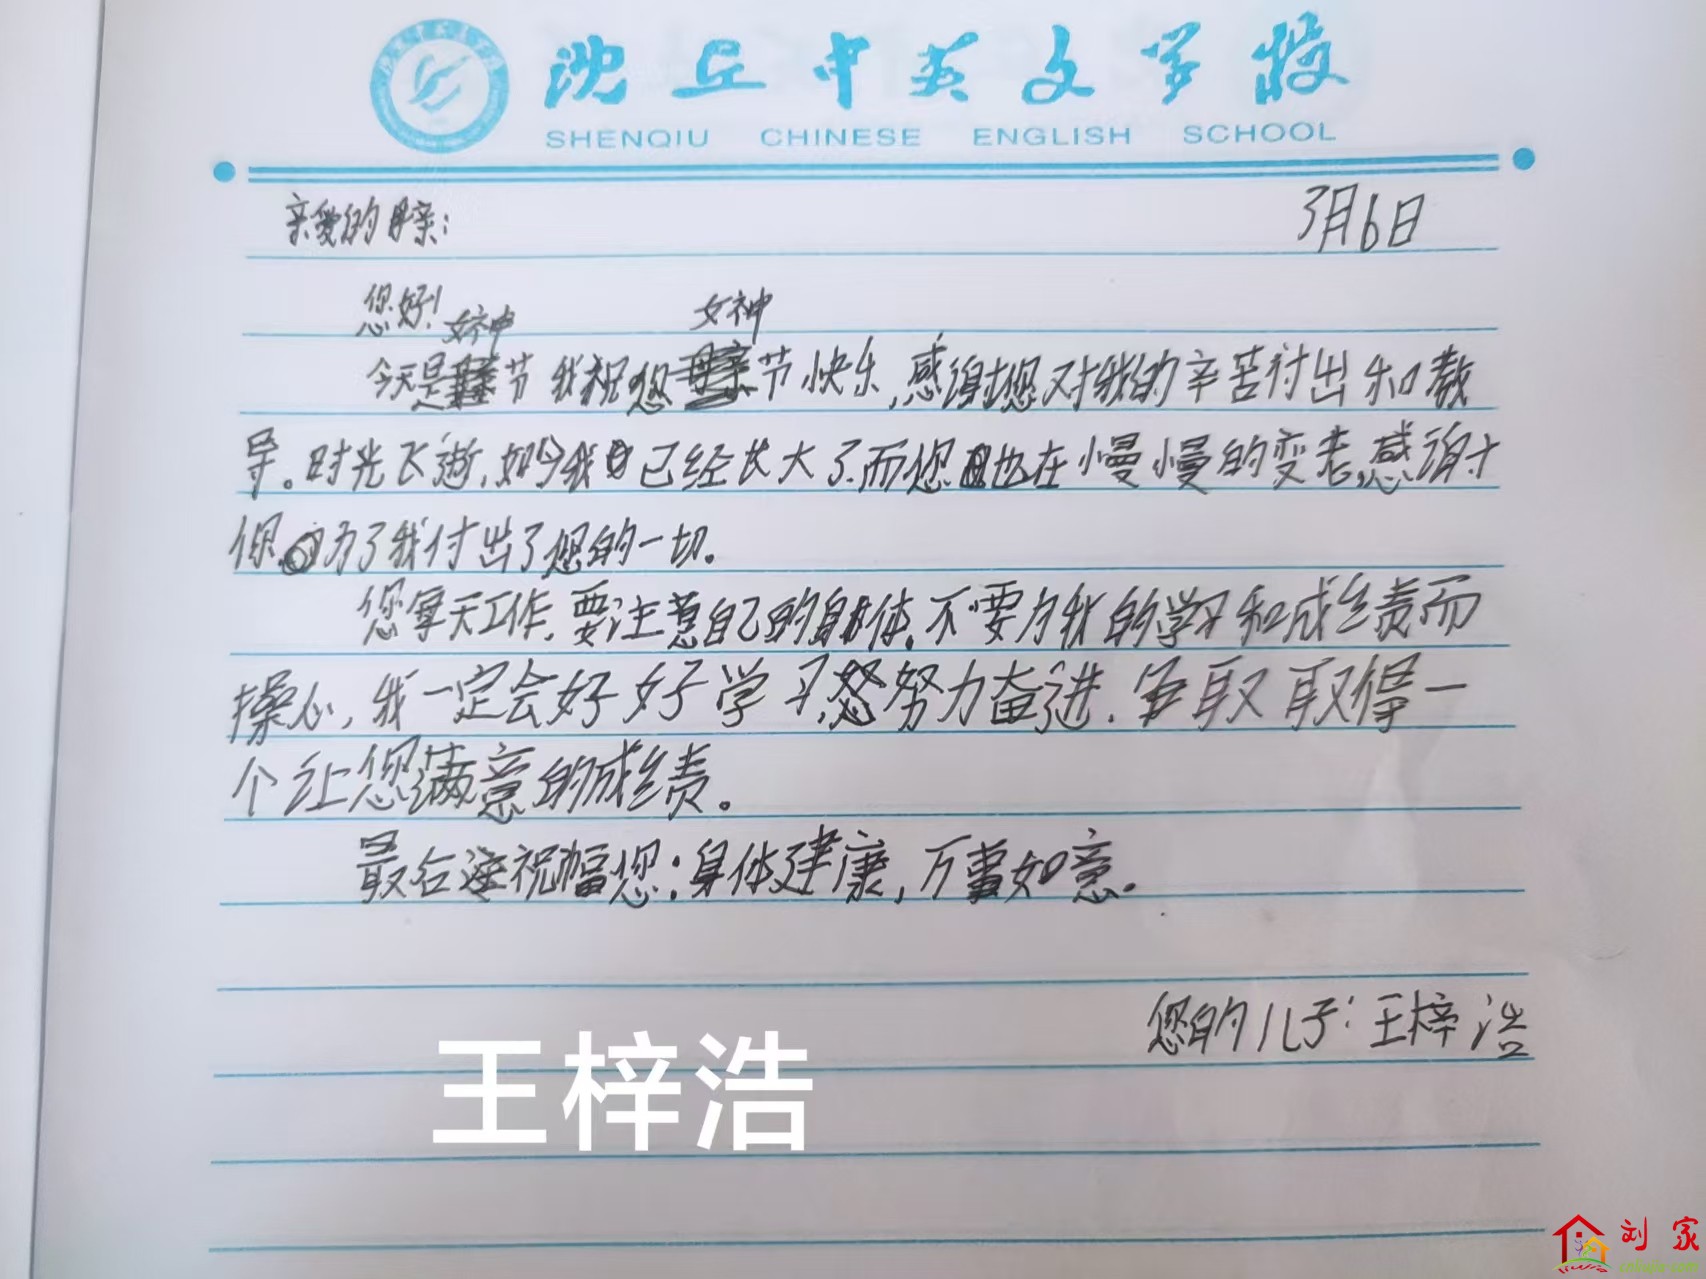 沈丘中英文学校
SHENQIU CHINESE ENGLISH SCHOOL
亲爱的母亲:
3月6日
您好!
女神 女神
今天是节我祝您节快乐,感谢您对我的辛苦付出和教
导。时光飞逝,如今我已经长大了.而您也在慢慢的变老,感谢
你为了我付出了您的一切.
您每天工作,要注意自己的身体.不要为我的学习和成绩而
操心,我一定会好好学习,努力奋进.争取取得一
个让您满意的成绩。
最后祝福您:身体建康,万事如意.
您的儿子:王梓浩
王梓浩
刘家